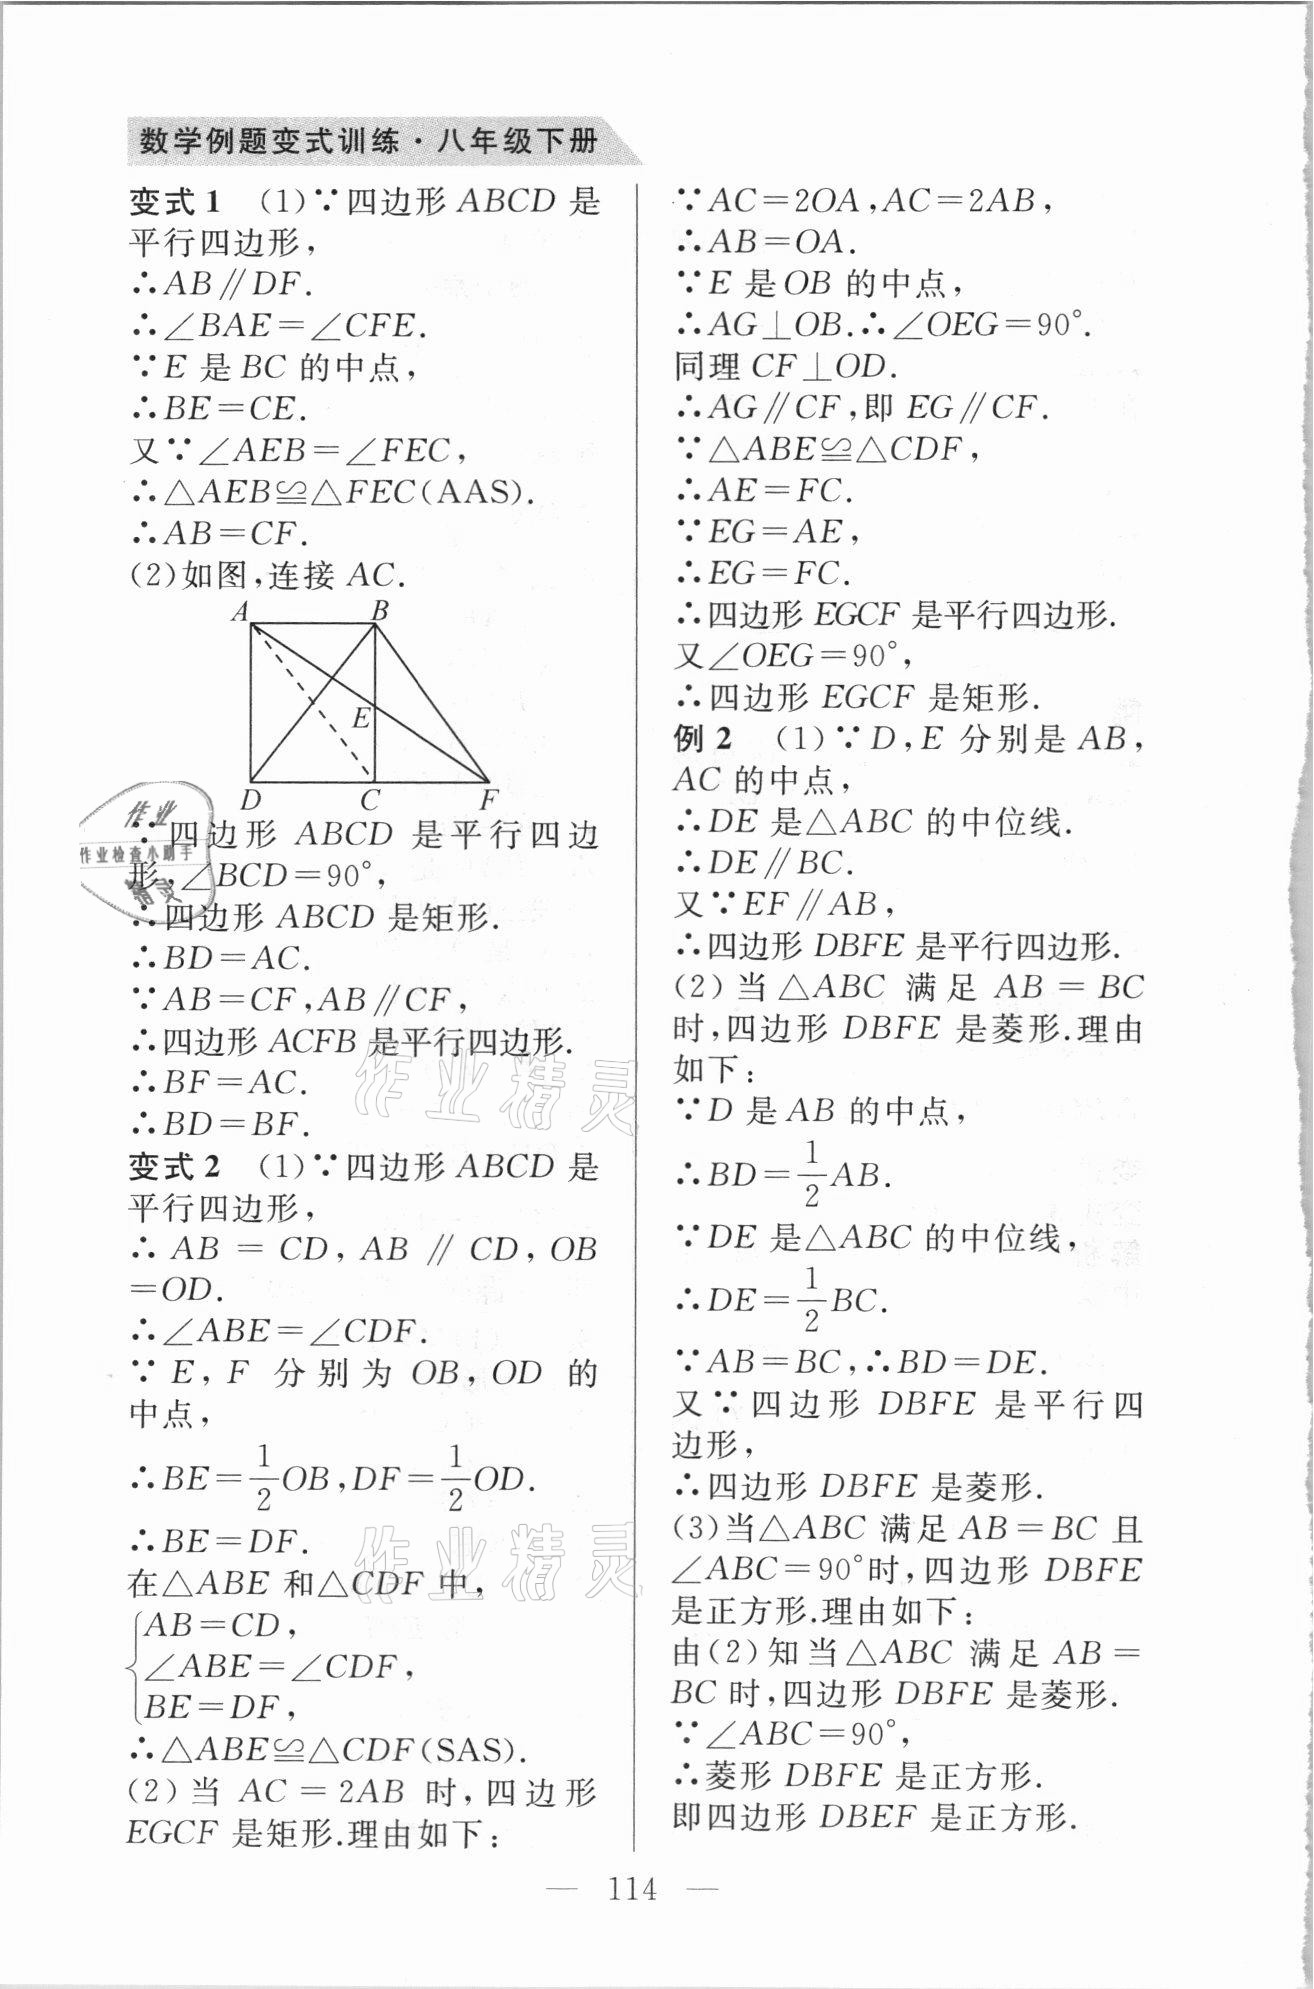 数学例题变式训练·八年级下册
变式1 (1)∵四边形ABCD是
平行四边形，
∴AB∥DF.
∴∠BAE=∠CFE.
∵E是BC的中点，
∴BE=CE.
又∵∠AEB=∠FEC，
∴△AEB≌△FEC(AAS).
∴AB=CF.
(2)如图，连接AC.
A B
E
D C F
∵四边形ABCD是平行四边
形，∠BCD=90°，
∴四边形ABCD是矩形.
∴BD=AC.
∵AB=CF，AB∥CF，
∴四边形ACFB是平行四边形.
∴BF=AC.
∴BD=BF.
变式2 (1)∵四边形ABCD是
平行四边形，
∴AB=CD，AB∥CD，OB
=OD.
∴∠ABE=∠CDF.
∵E，F分别为OB，OD的
中点，
∴BE=1/2OB，DF=1/2OD.
∴BE=DF.
在△ABE和△CDF中，
AB=CD，
∠ABE=∠CDF，
BE=DF，
∴△ABE≌△CDF(SAS).
(2)当AC=2AB时，四边形
EGCF是矩形.理由如下：
∵AC=2OA，AC=2AB，
∴AB=OA.
∵E是OB的中点，
∴AG⊥OB.∴∠OEG=90°.
同理CF⊥OD.
∴AG∥CF，即EG∥CF.
∵△ABE≌△CDF，
∴AE=FC.
∵EG=AE，
∴EG=FC.
∴四边形EGCF是平行四边形.
又∠OEG=90°，
∴四边形EGCF是矩形.
例2 (1)∵D，E分别是AB，
AC的中点，
∴DE是△ABC的中位线.
∴DE∥BC.
又∵EF∥AB，
∴四边形DBFE是平行四边形.
(2)当△ABC满足AB=BC
时，四边形DBFE是菱形.理由
如下：
∵D是AB的中点，
∴BD=1/2AB.
∵DE是△ABC的中位线，
∴DE=1/2BC.
∵AB=BC，∴BD=DE.
又∵四边形DBFE是平行四
边形，
∴四边形DBFE是菱形.
(3)当△ABC满足AB=BC且
∠ABC=90°时，四边形DBFE
是正方形.理由如下：
由(2)知当△ABC满足AB=
BC时，四边形DBFE是菱形.
∵∠ABC=90°，
∴菱形DBFE是正方形.
即四边形DBEF是正方形.
— 114 —
作业
作业检查小助手
精灵
作业精灵
作业精灵